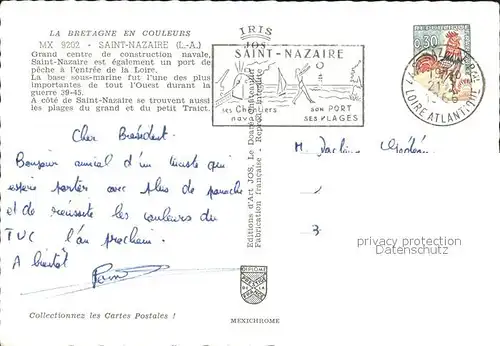 LA BRETAGNE EN COULEURS
MX 9202 - SAINT-NAZAIRE (L.-A.)
Grand centre de construction navale,
Saint-Nazaire est également un port de
pêche à l'entrée de la Loire.
La base sous-marine fut l'une des plus
importantes de tout l'Ouest durant la
guerre 39-45.
A côté de Saint-Nazaire se trouvent aussi
les plages du grand et du petit Traict.
IRIS
JOS
SAINT-NAZAIRE
ses Chantiers
navals
SON PORT
SES PLAGES
0,30
LOIRE ATLANTIQUE
Editions d'Art JOS, Le Doaré, Châteaulin
Fabrication française - Reproduction interdite
Cher Président.
Bonjour amical d'un
espère porter avec plus de panache
et de réussite les couleurs du
TUC l'an prochain.
A bientôt
M.
privacy protection
Datenschutz
DIPLOME
Collectionnez les Cartes Postales !
MEXICHROME